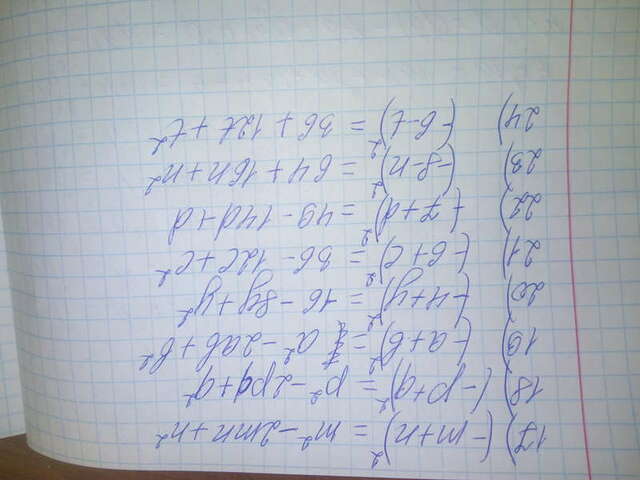 17) (-m+n)² = m² - 2mn + n²
18) (-p+q)² = p² - 2pq + q²
19) (-a+b)² = a² - 2ab + b²
20) (-4+y)² = 16 - 8y + y²
21) (-6+c)² = 36 - 12c + c²
22) (-7+d)² = 49 - 14d + d
23) (-8-n)² = 64 + 16n + n²
24) (-6-t)² = 36 + 12t + t²